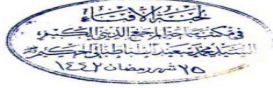 لجنة الإفتاء
في مكتب سماحة المرجع الديني الكبير
السيد محمد سعيد الطباطبائي الحكيم
٢٥ شهر رمضان ١٤٤٢